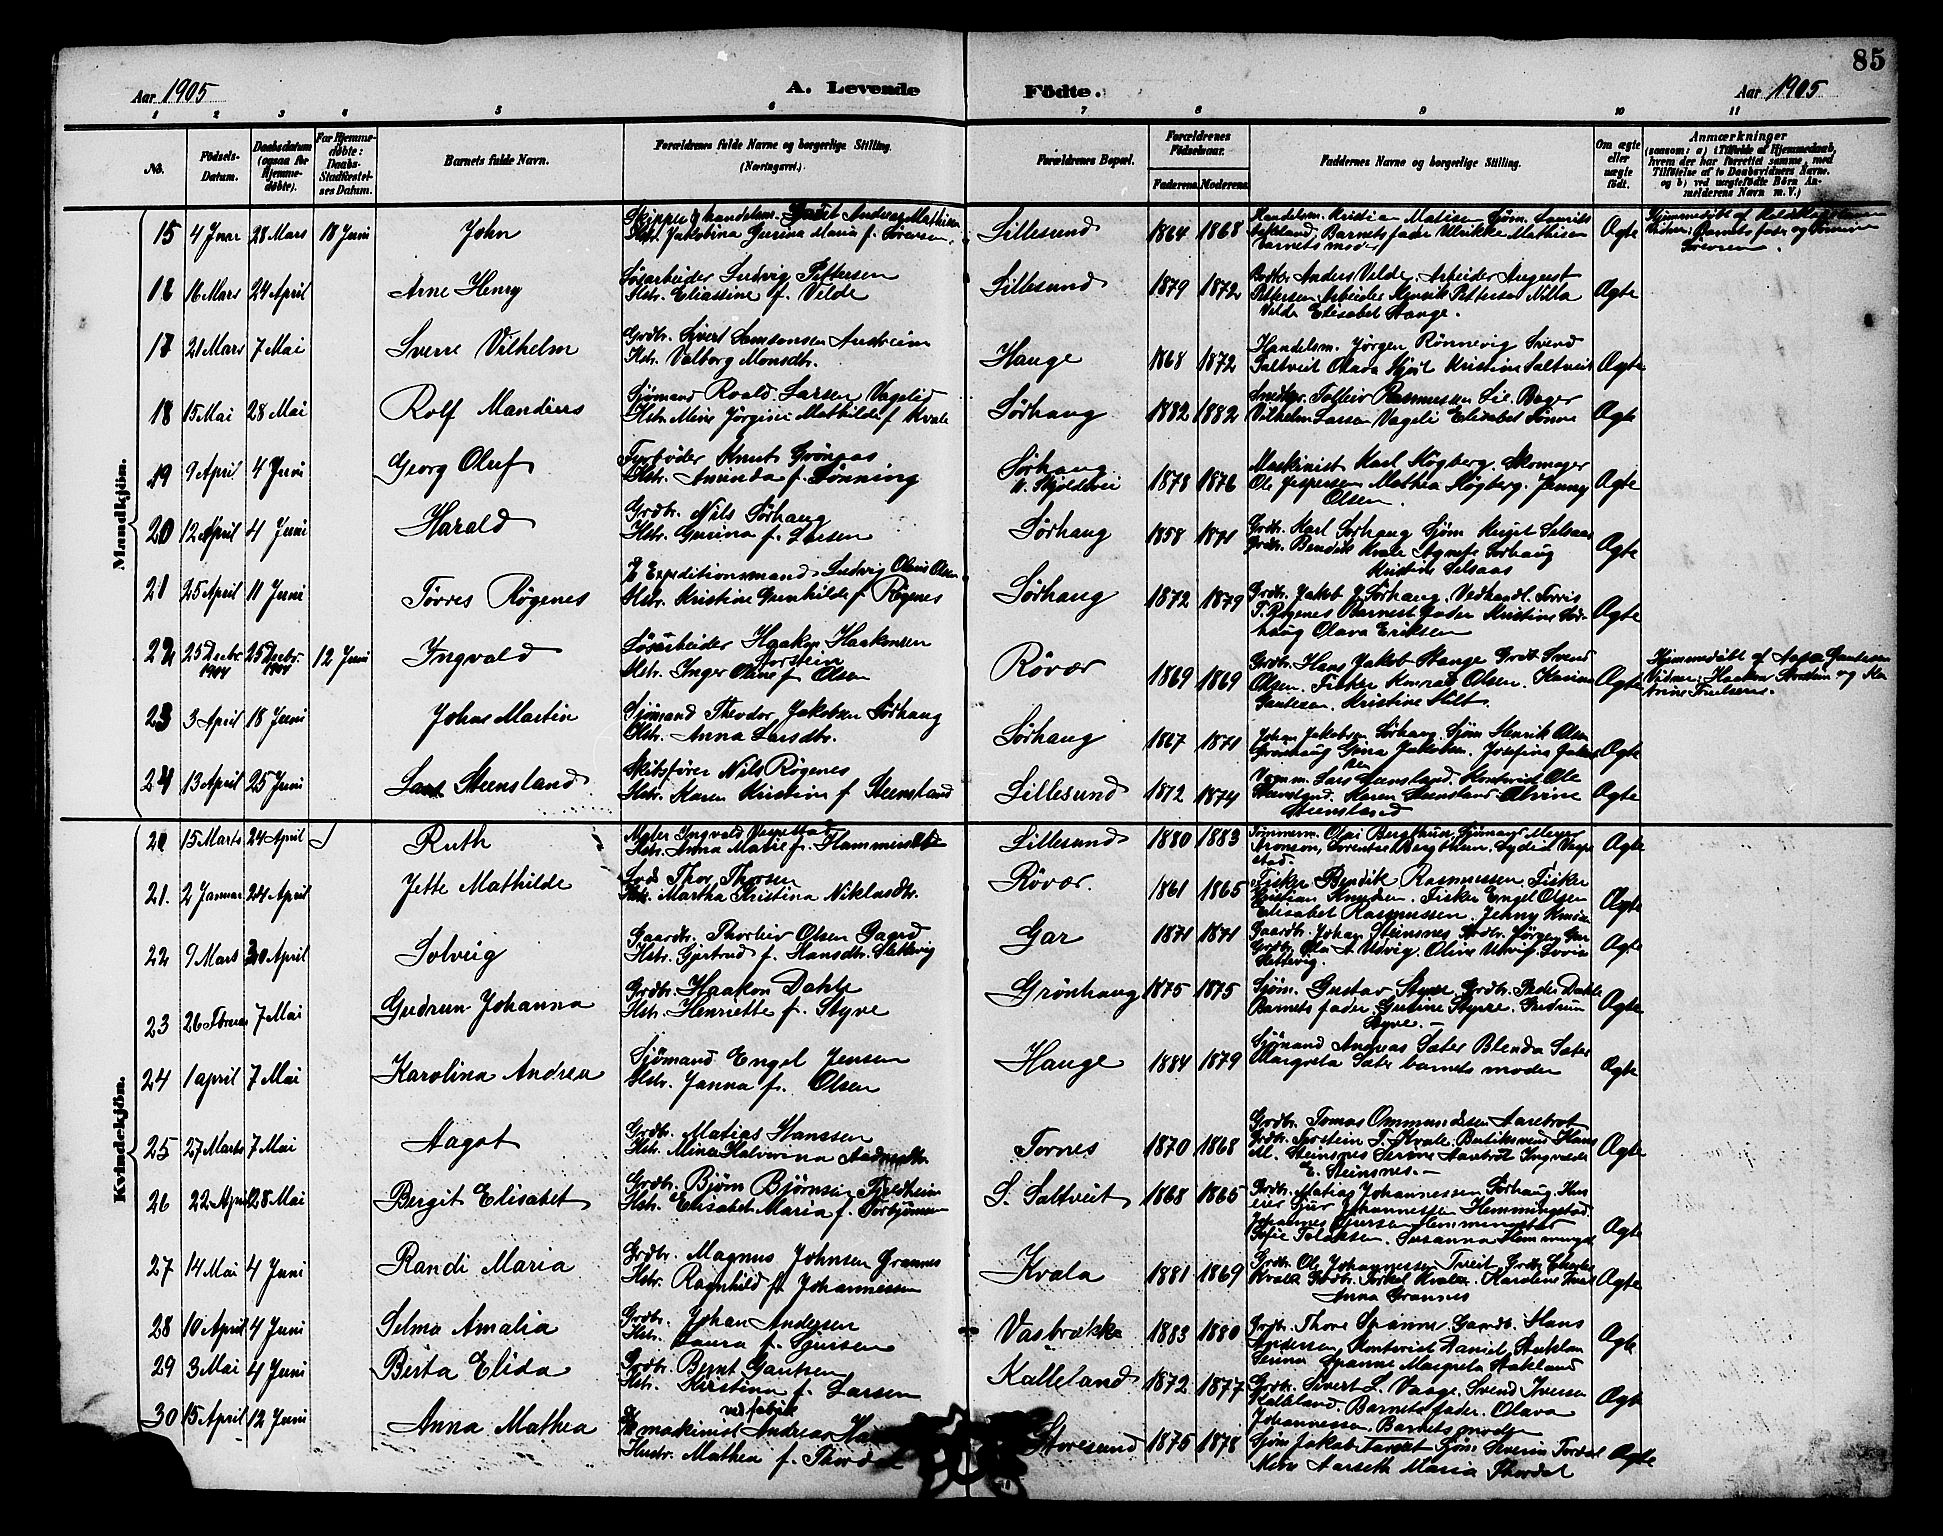 85
Aar 1905
A. Levende
Födte.
Aar 1905
1 2 3 4 5 6 7 8 9 10 11
No.
Födsels-Datum.
Daabsdatum (ogsaa for Hjemmedöbte).
For Hjemmedöbte: Daabs-Stadfæstelses Datum.
Barnets fulde Navn.
Forældrenes fulde Navne og borgerlige Stilling. (Næringsvei.)
Forældrenes Bopæl.
Forældrenes Födselsaar.
Faderens Moderens
Faddernes Navne og borgerlige Stilling.
Om ægte eller uægte födt.
Anmærkninger
(saasom: a) i Tilfælde af Hjemmedaab, hvem der har forrettet samme, med Tilföielse af to Daabsvidners Navne. og b) ved uægtefödte Börn Anmelderens Navn m. V.)
Mandkjön.
15 4 Juar 28 Mars 18 Juni John
Jakobina Gurina Maria f. Sörensen
Lillesund 1864 1868
Handelsm. Kristian
Barnets fader Ulrikke Mathisen
Barnets moder
Agte
Hjemmedöbt af
Vidner: Barnets fader og
16 16 Mars 24 April Arne Henry
Lösarbeider Ludvig Pettersen
Hstr. Eliassine f. Velde
Lillesund 1879 1872
Anders Velde. Arbeider August
Pettersen Arbeider Henrik Pettersen Nilla
Velde Elisabet Hauge.
Agte
17 21 Mars 7 Mai Sverre Vilhelm
Grdbr. Sivert Samsonsen Austreim
Hstr. Valborg Monsdtr.
Hauge 1868 1872
Handelsm. Jörgen Rönnevig Svend
Saltveit Olava Kristine Saltveit
Agte
18 15 Mai 28 Mai Rolf Mandius
Sjömand Roald Larsen Vageli
Hstr. Jörgine Mathilde f Kvale
Sörhaug 1882 1882
Rasmussen Lie Bager
Vilhelm Larsen Vageli Elisabet
Agte
19 9 April 4 Juni Georg Oluf
Fyrböder Knut Grönaas
Hstr. Aminda f. Lönning
Sörhaug
v. Skjoldvei
1878 1876
Maskinist Karl Högberg. Skomager
Ole Jespersen Mathea Högberg. Jenny
Olsen
Agte
20 12 April 4 Juni Harald
Grdbr. Nils Sörhaug
Hstr. Gurina f. Larsen
Sörhaug 1858 1871
Grdbr. Karl Sörhaug Sjöm Selsaas
Grdbr. Bendik Kvale Agnete Sörhaug
Kristine Selsaas
Agte
21 25 April 11 Juni Torres Røgenes
Expeditionsmand Ludvig Olaus Olsen
Hstr. Kristine Gunhilde f. Røgenes
Sörhaug 1872 1879
Grdbr. Jakob J. Sörhaug. Vedhandl. Torris
T. Røgenes Barnets fader Kristine Sör-
haug Olava Eriksen
Agte
22 25 Decbr. 1904 25 Decbr. 1904 12 Juni Ingvald
Lösarbeider Haakon Haakonsen
Storstein
Hstr. Inger Oline f Olsen
Rövær 1869 1869
Grdbr. Hans Jakob Hauge Grdbr Svend
Olsen. Fisker Konrad Olsen. Karine
Gautesen. Kristine Hilt.
Agte
Hjemmedöbt af
Vidner: Haakon og
23 3 April 18 Juni Johns Martin
Sjömand Theodor Jakobsen Sörhaug
Hstr. Anna Larsdtr.
Sörhaug 1867 1871
Johan Jakobsen Sörhaug. Sjöm Henrik Olsen
Grönhaug Gina Jakobsen. Josefine Jakob
sen
Agte
24 13 April 25 Juni Lars Steensland
Skibsförer Nils Røgenes
Hstr. Karen Kristine f Steensland
Lillesund 1872 1874
Lars Steensland. Kontorist Ole
Steensland. Karen Steensland. Alvine
Steensland
Agte
Kvindekjön.
20 15 Marts 24 April Ruth
Maler Ingvald
Hstr. Anna Marie f.
Lillesund 1880 1883
Tömmerm. Olai Bergthun, Meyer
Aronson, Lorentse Bergthun. Lydia
Agte
21. 2 Januar 24 April Jette Mathilde
Thor Thorsen
Hstr. Martha Kristina Niklasdtr.
Rövær. 1861 1865
Fisker Bendik Rasmussen. Fisker
Kristian Knudsen. Fisker Engel Olsen
Elisabet Rasmussen. Jenny
Agte
22 9 Mars 30 April Solveig
Gaardbr. Thorleiv Olsen Gaard
Hstr. Gjertrud f. Hansdtr. Slettevig
Gar 1871 1871
Gaardbr. Johan Steinsnes Grdbr. Jörgen Gar
Grdbr. Ola A Utvig. Oline Utvig.
Slettevig.
Agte
23 26 7 Mai Gudrun Johanna
Grdbr. Haakon Dahle
Hstr. Henriette f. Styve
Grönhaug 1875 1875
Sjöm. Gustav Styve Grdbr. Peder Dahle
Barnets fader. Gurine Styve. Gudrun
Styve. -
Agte
24 1 april 7 Mai Karolina Andrea
Sjömand Engel Jensen
Hstr. Janna f. Olsen
Hauge 1884 1879
Sjömand Andreas Sæter Blenda Sæter
Margreta Sæter barnets moder
Agte
25 27 Marts 7 Mai Aagot
Grdbr. Matias Hanssen
Hstr. Mina Halvorina
Tornes 1870 1868
Grdbr. Tomas Ommundsen Aasebröt
Grdbr. Torstein T. Kvale. Butiksvend Hans
M. Steinsnes Serine Aasebröt Ingvalda
E. Steinsnes. -
Agte
26 22 April 28 Mai Bergit Elisabet
Grdbr. Bjørn Bjørnsen
Hstr. Elisabet Maria f. Torbjørnsen
S. Saltveit 1868 1865
Grdbr. Matias Johannessen Sörhaug. Hus
eier Sjur Johannessen Hemmingstad
Johannes Sjursen Hemmingstad
Sofie Tolaksen. Susanna Hemmingst
Agte
27 14 Mai 4 Juni Randi Maria
Grdbr. Magnus Johnsen Grannes
Hstr. Ragnhild f. Johannessen
Kvala 1881 1869
Grdbr. Ole Johannessen Tveit Grdbr.
Kvala Grdbr. Torkel Kvala. Karoline Tveit
Anna Grannes
Agte
28 10 April 4 Juni Selma Amalia
Grdbr. Johan Andersen
Hstr. Laura f. Sjursen
Vasbrække 1883 1880
Grdbr. Thore Spanne Gaardbr. Hans
Andersen, Kontorist Daniel Stakland
Serina Spanne Margreta Stakland
Agte
29 3 Mai 4 Juni Berta Elida
Grdbr. Bernt Gautsen
Hstr. Kristina f. Larsen
Kalleland 1872 1877
Grdbr. Sivert L. Vaage. Svend Iversen
Kalleland. Barnets fader. Olava
Johannessen. Barnets moder
Agte
30 15 April 12 Juni Anna Mathea
ved fabrik
maskinist Andreas
Hustr. Mathea f. Thordal
Storesund 1875 1878
Sjöm Jakob Sjöm. Severin Tordal
Aarseth Maria Thordal
Agte